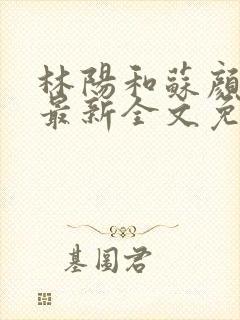 林陽和蘇顏
最新全文免
基圖君